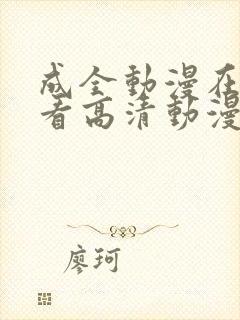 成全動漫在
看高清動漫
廖珂